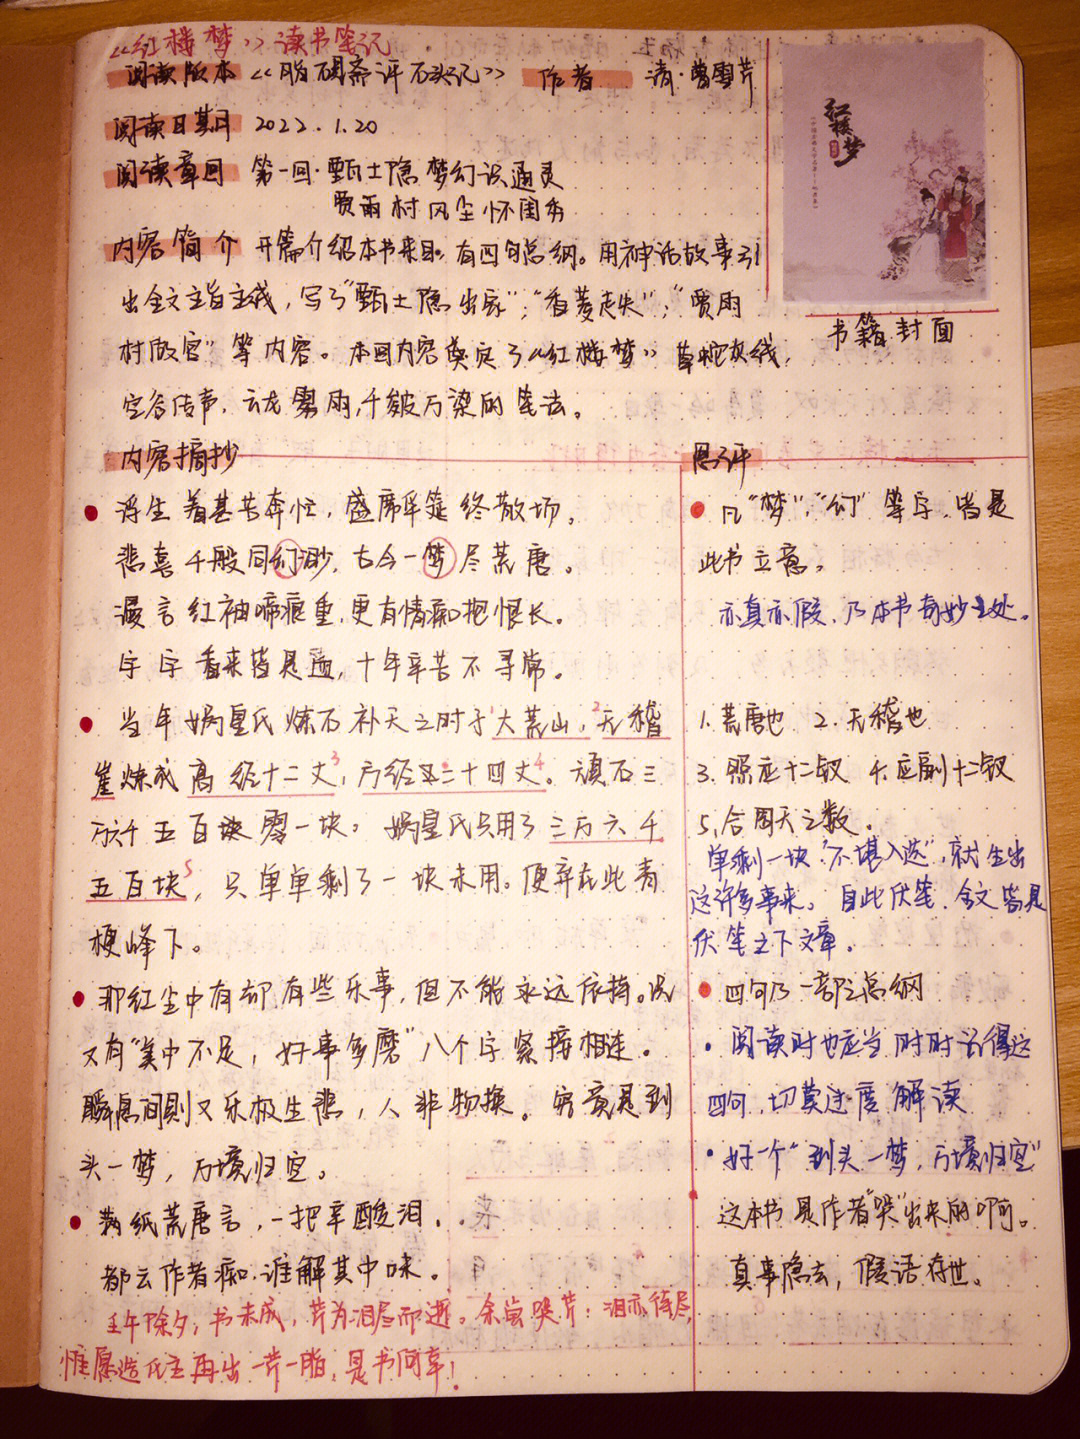 《红楼梦》读书笔记
阅读版本 《脂砚斋评石头记》 作者 清·曹雪芹
阅读日期 2022.1.20
阅读章回 第一回·甄士隐梦幻识通灵
贾雨村风尘怀闺秀
内容简介 开篇介绍本书来由,有四句总纲。用神话故事引
出全文主旨主线,写了"甄士隐出家";"香菱走失";"贾雨
村做官"等内容。本回内容奠定了《红楼梦》草蛇灰线,
空谷传声,云龙雾雨,千皴万染的笔法。
红楼梦
书籍封面
内容摘抄
浮生着甚苦奔忙,盛席华筵终散场,
悲喜千般同幻渺,古今一梦尽荒唐。
漫言红袖啼痕重,更有情痴抱恨长。
字字看来皆是血,十年辛苦不寻常。
当年娲皇氏炼石补天之时于1大荒山,2无稽
崖炼成高经十二丈3,方经二十四丈4。顽石三
万六千五百块零一块。娲皇氏只用了三万六千
五百块5,只单单剩了一块未用。便弃在此青
梗峰下。
那红尘中有却有些乐事,但不能永远依持。况
又有"美中不足,好事多磨"八个字紧接相连。
瞬息间则又乐极生悲,人非物换。究竟是到
头一梦,万境归空。
满纸荒唐言,一把辛酸泪。
都云作者痴,谁解其中味。
壬午除夕,书未成,芹为泪尽而逝。余尝哭芹;泪亦待尽,
惟愿造化主再出一芹一脂,是书何幸!
思评
凡"梦","幻"等字,皆是
此书立意。
亦真亦假,乃本书奇妙之处。
1.荒唐也 2.无稽也
3.照应十二钗 4.应副十二钗
5.合周天之数。
单剩一块"不堪入选",就生出
这许多事来。自此伏笔,全文皆是
伏笔之下文章.
四句乃一部之总纲
·阅读时也应当时时记得这
四句,切莫过度解读
·好一个"到头一梦,万境归空"
这本书是作者"哭"出来的啊。
真事隐去,假语存世。